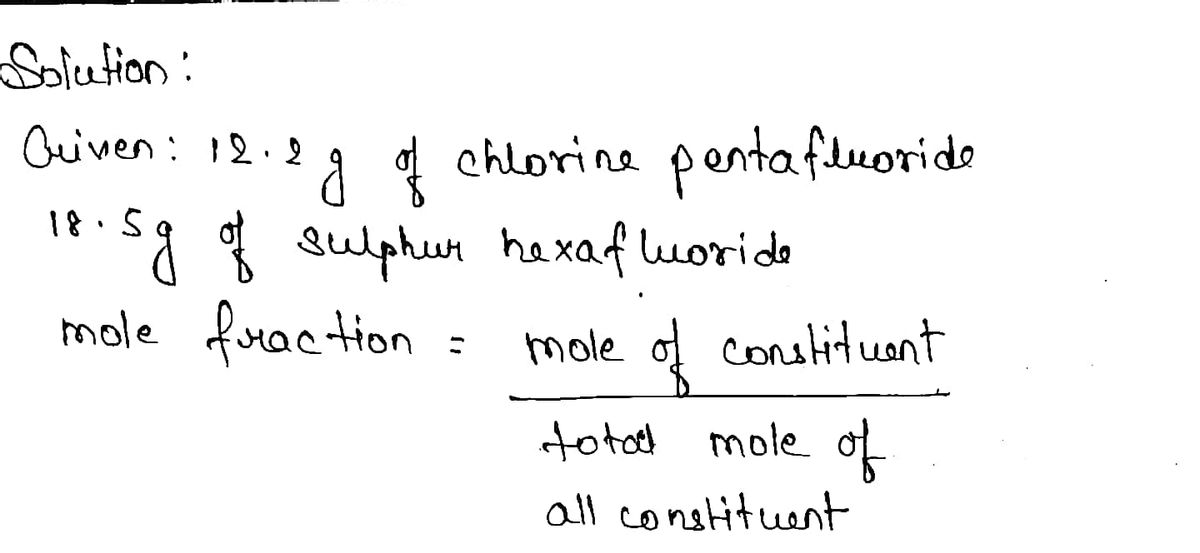 Solution :
Given : 12.2 g of chlorine pentafluoride
18.5g of sulphur hexafluoride
mole fraction = mole of constituent
total mole of
all constituent